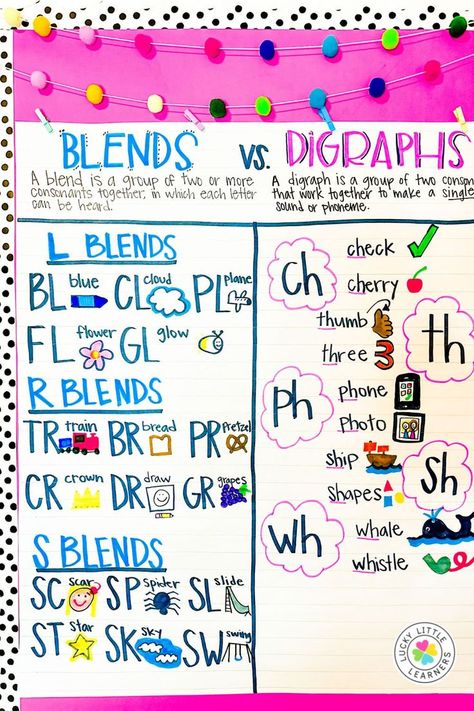 BLENDS vs. DIGRAPHS
A blend is a group of two or more
consonants together, in which each letter
can be heard.
A digraph is a group of two
that work together to make a single
sound or phoneme.
L BLENDS
BL blue CL cloud PL plane
FL flower GL glow
R BLENDS
TR train BR bread PR pretzel
CR crown DR draw GR grapes
S BLENDS
SC scar SP spider SL slide
ST star SK sky SW swing
ch
check
cherry
th
thumb
three 3
ph
phone
photo
sh
ship
shapes
wh
whale
whistle
LUCKY LITTLE LEARNERS